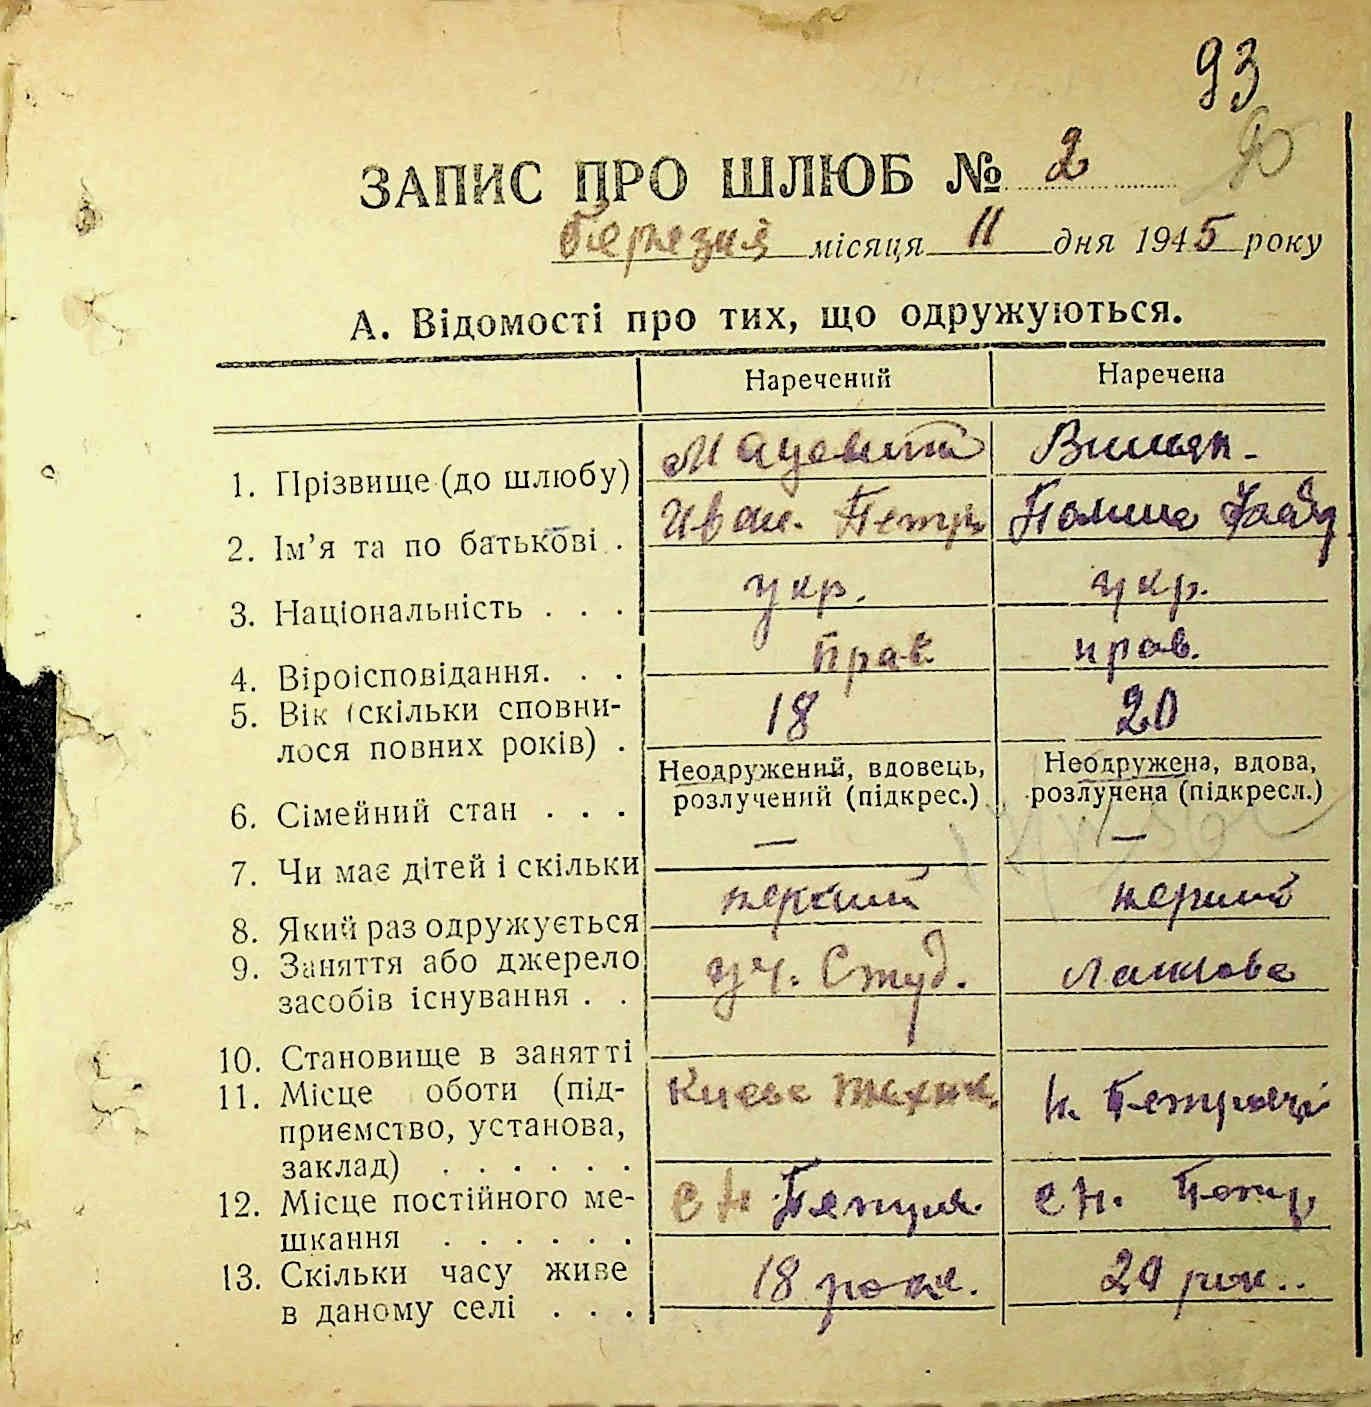 93
90
ЗАПИС ПРО ШЛЮБ № 2
березня місяця 11 дня 1945 року
А. Відомості про тих, що одружуються.
Наречений Наречена
1. Прізвище (до шлюбу) Мацевит
2. Ім'я та по батькові . Иван. Петр.
3. Національність . . . укр. укр.
4. Віроісповідання. . . прав. прав.
5. Вік (скільки сповни-
лося повних років) . 18 20
Неодружений, вдовець, Неодружена, вдова,
розлучений (підкрес.) розлучена (підкресл.)
6. Сімейний стан . . .
7. Чи має дітей і скільки — —
8. Який раз одружується перший перший
9. Заняття або джерело
засобів існування . . уч. Студ.
10. Становище в занятті
11. Місце оботи (під-
приємство, установа, Н. Петрівці
заклад) . . . . . .
12. Місце постійного ме-
шкання . . . . . . с Н. Петр. с Н. Петр.
13. Скільки часу живе
в даному селі . . . 18 рок. 20 рок..